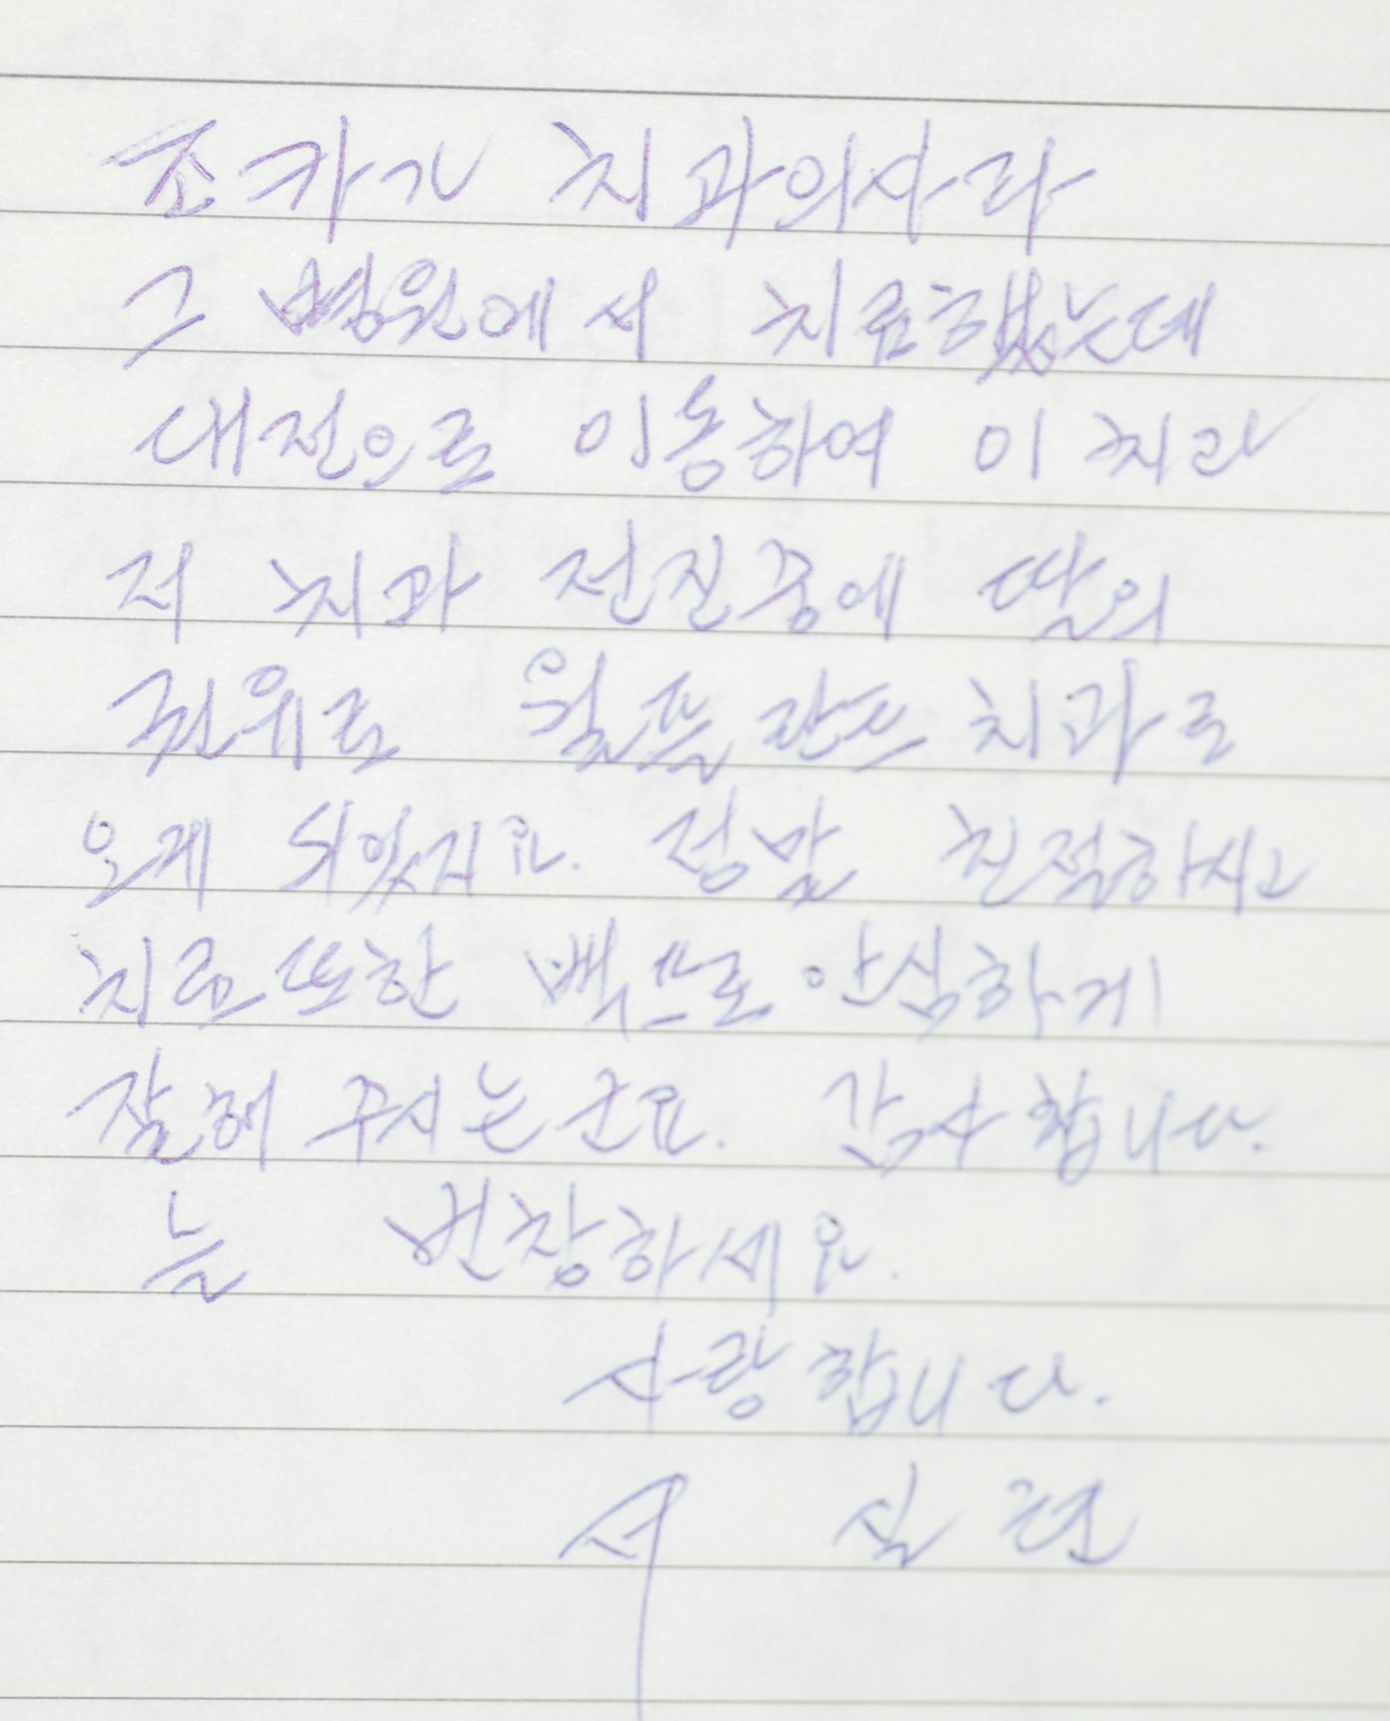 조카가 치과의사라
그 병원에서 치료했는데
대전으로 이동하여 이 치과
저 치과 전진중에 딸의
권위로 월플란트 치과로
오게 되었지요. 정말 친절하시고
치료 또한 백프로 안심하게
잘해 주시는군요. 감사합니다.
늘 번창하세요.
사랑합니다.
서 실현